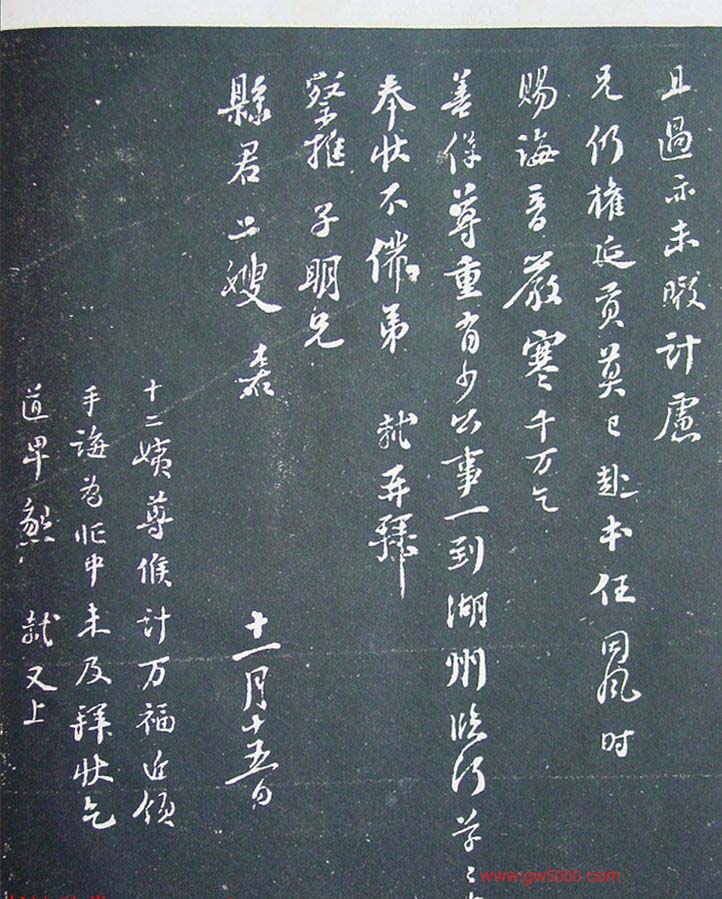 且過示未暇計慮
兄仍權延貢莫已赴本任因風时
賜誨音嚴寒千万乞
善保尊重有少公事一到湖州临行草〻
奉状不備弟 軾再拜
察推子明兄
縣君二嫂 座
十一月十五日
十二姨尊候计万福近领
手誨為忙中未及拜状乞
道卑懇 軾又上
www.gw5000.com